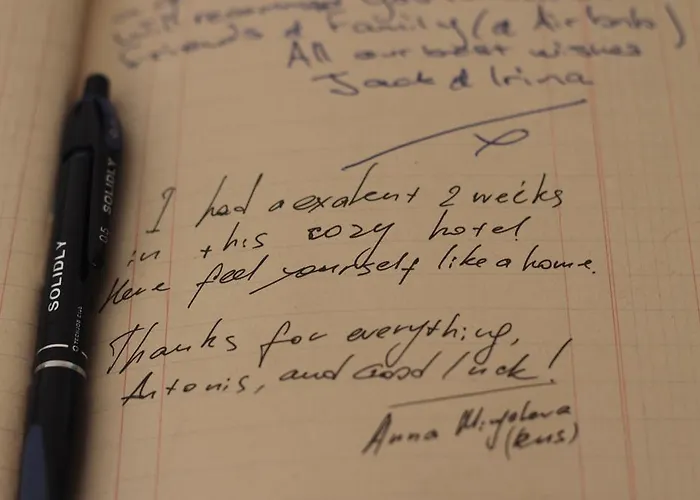 Will recommend you
Friends & Family (& Airbnb)
All our best wishes
Jack & Irina
I had a exelent 2 weeks
in this cozy hotel
Here feel yourself like a home.
Thanks for everything,
Antonis, and Good luck!
Anna
(Rus)
SOLIDLY
0.5 SOLIDLY